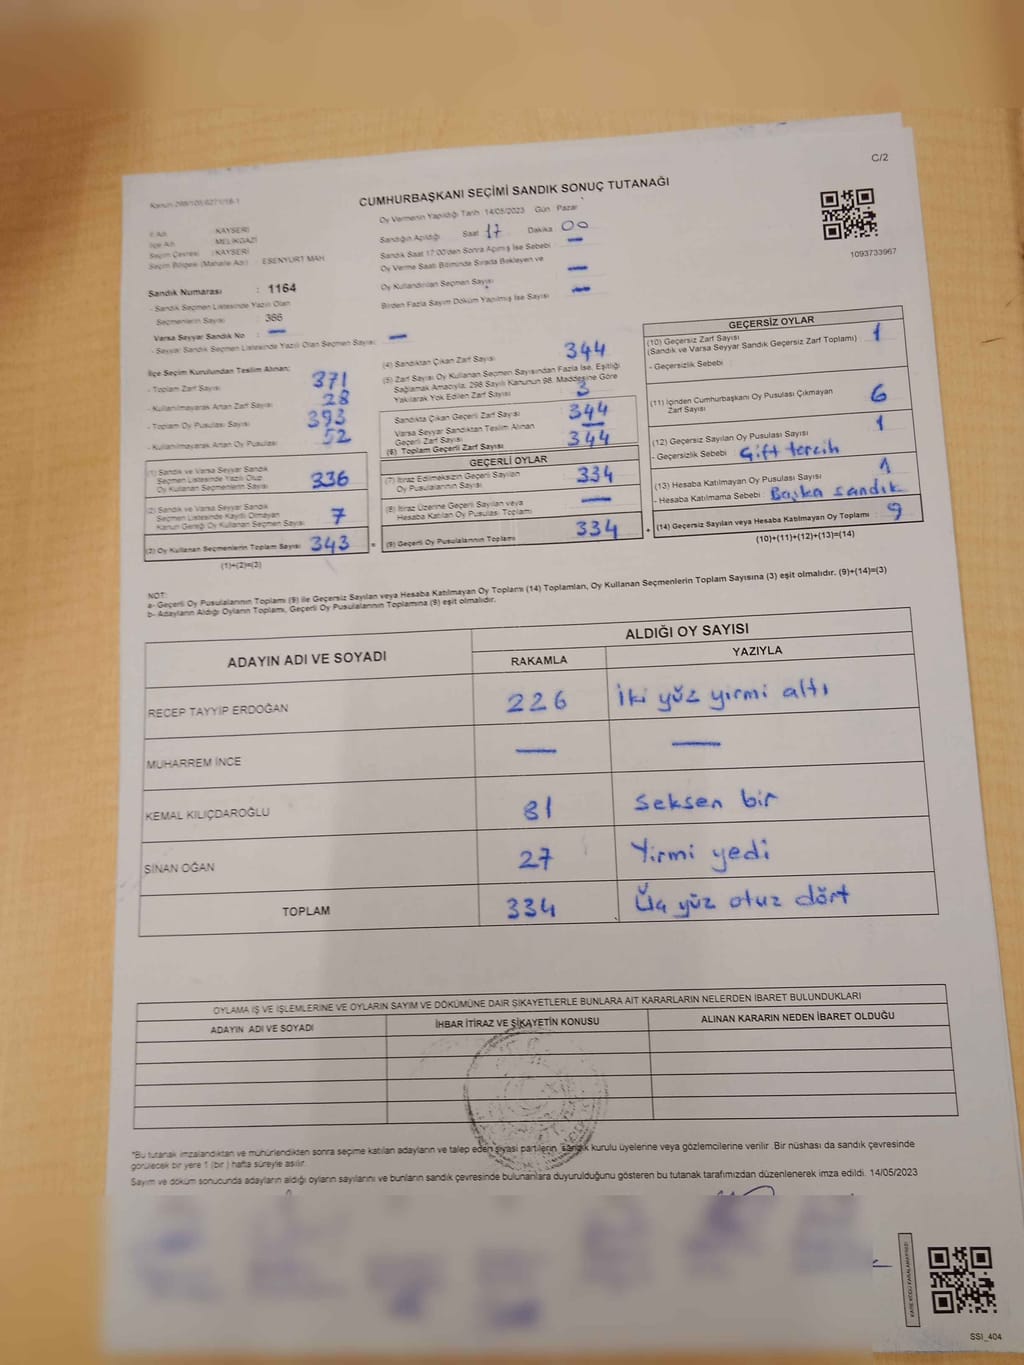 C/2
CUMHURBAŞKANI SEÇİMİ SANDIK SONUÇ TUTANAĞI
Oy Vermenin Yapıldığı Tarih :14/05/2023 Gün :Pazar
İl Adı : KAYSERİ
İlçe Adı : MELİKGAZİ
Seçim Çevresi : KAYSERİ
Seçim Bölgesi (Mahalle Adı) : ESENYURT MAH
Sandığın Açıldığı Saat 17 Dakika 00
Sandık Saat 17:00'den Sonra Açılmış İse Sebebi —
Oy Verme Saati Bitiminde Sırada Bekleyen ve
Oy Kullandırılan Seçmen Sayısı —
Birden Fazla Sayım Döküm Yapılmış İse Sayısı —
1093733967
Sandık Numarası : 1164
- Sandık Seçmen Listesinde Yazılı Olan
Seçmenlerin Sayısı : 366
Varsa Seyyar Sandık No : —
- Seyyar Sandık Seçmen Listesinde Yazılı Olan Seçmen Sayısı: —
İlçe Seçim Kurulundan Teslim Alınan:
- Toplam Zarf Sayısı 371
- Kullanılmayarak Artan Zarf Sayısı 28
- Toplam Oy Pusulası Sayısı 393
- Kullanılmayarak Artan Oy Pusulası 52
(1) Sandık ve Varsa Seyyar Sandık
Seçmen Listesinde Yazılı Olup
Oy Kullanan Seçmenlerin Sayısı 336
(2) Sandık ve Varsa Seyyar Sandık
Seçmen Listesinde Kayıtlı Olmayan
Kanun Gereği Oy Kullanan Seçmen Sayısı 7
(3) Oy Kullanan Seçmenlerin Toplam Sayısı 343 =
(1)+(2)=(3)
(4) Sandıktan Çıkan Zarf Sayısı 344
(5) Zarf Sayısı Oy Kullanan Seçmen Sayısından Fazla İse, Eşitliği
Sağlamak Amacıyla, 298 Sayılı Kanunun 98. Maddesine Göre
Yakılarak Yok Edilen Zarf Sayısı 3
Sandıkta Çıkan Geçerli Zarf Sayısı 344
Varsa Seyyar Sandıktan Teslim Alınan
Geçerli Zarf Sayısı —
(6) Toplam Geçerli Zarf Sayısı 344
GEÇERLİ OYLAR
(7) İtiraz Edilmeksizin Geçerli Sayılan
Oy Pusulasının Sayısı 334
(8) İtiraz Üzerine Geçerli Sayılan veya
Hesaba Katılan Oy Pusulası Toplamı —
(9) Geçerli Oy Pusulalarının Toplamı 334 +
GEÇERSİZ OYLAR
(10) Geçersiz Zarf Sayısı
(Sandık ve Varsa Seyyar Sandık Geçersiz Zarf Toplamı) 1
- Geçersizlik Sebebi :
(11) İçinden Cumhurbaşkanı Oy Pusulası Çıkmayan
Zarf Sayısı 6
(12) Geçersiz Sayılan Oy Pusulası Sayısı 1
- Geçersizlik Sebebi : Çift tercih
(13) Hesaba Katılmayan Oy Pusulası Sayısı 1
- Hesaba Katılmama Sebebi : Başka sandık
(14) Geçersiz Sayılan veya Hesaba Katılmayan Oy Toplamı : 9
(10)+(11)+(12)+(13)=(14)
NOT:
a- Geçerli Oy Pusulalarının Toplamı (9) ile Geçersiz Sayılan veya Hesaba Katılmayan Oy Toplamı (14) Toplamları, Oy Kullanan Seçmenlerin Toplam Sayısına (3) eşit olmalıdır. (9)+(14)=(3)
b- Adayların Aldığı Oyların Toplamı, Geçerli Oy Pusulalarının Toplamına (9) eşit olmalıdır.
ADAYIN ADI VE SOYADI
ALDIĞI OY SAYISI
RAKAMLA YAZIYLA
RECEP TAYYİP ERDOĞAN 226 İki yüz yirmi altı
MUHARREM İNCE — —
KEMAL KILIÇDAROĞLU 81 Seksen bir
SİNAN OĞAN 27 Yirmi yedi
TOPLAM 334 Üç yüz otuz dört
OYLAMA İŞ VE İŞLEMLERİNE VE OYLARIN SAYIM VE DÖKÜMÜNE DAİR ŞİKAYETLERLE BUNLARA AİT KARARLARIN NELERDEN İBARET BULUNDUKLARI
ADAYIN ADI VE SOYADI İHBAR İTİRAZ VE ŞİKAYETİN KONUSU ALINAN KARARIN NEDEN İBARET OLDUĞU
*Bu tutanak imzalandıktan ve mühürlendikten sonra seçime katılan adayların ve talep eden siyasi partilerin sandık kurulu üyelerine veya gözlemcilerine verilir. Bir nüshası da sandık çevresinde
görülecek bir yere 1 (bir ) hafta süreyle asılır.
Sayım ve döküm sonucunda adayların aldığı oyların sayılarını ve bunların sandık çevresinde bulunanlara duyurulduğunu gösteren bu tutanak tarafımızdan düzenlenerek imza edildi. 14/05/2023
SSI_404